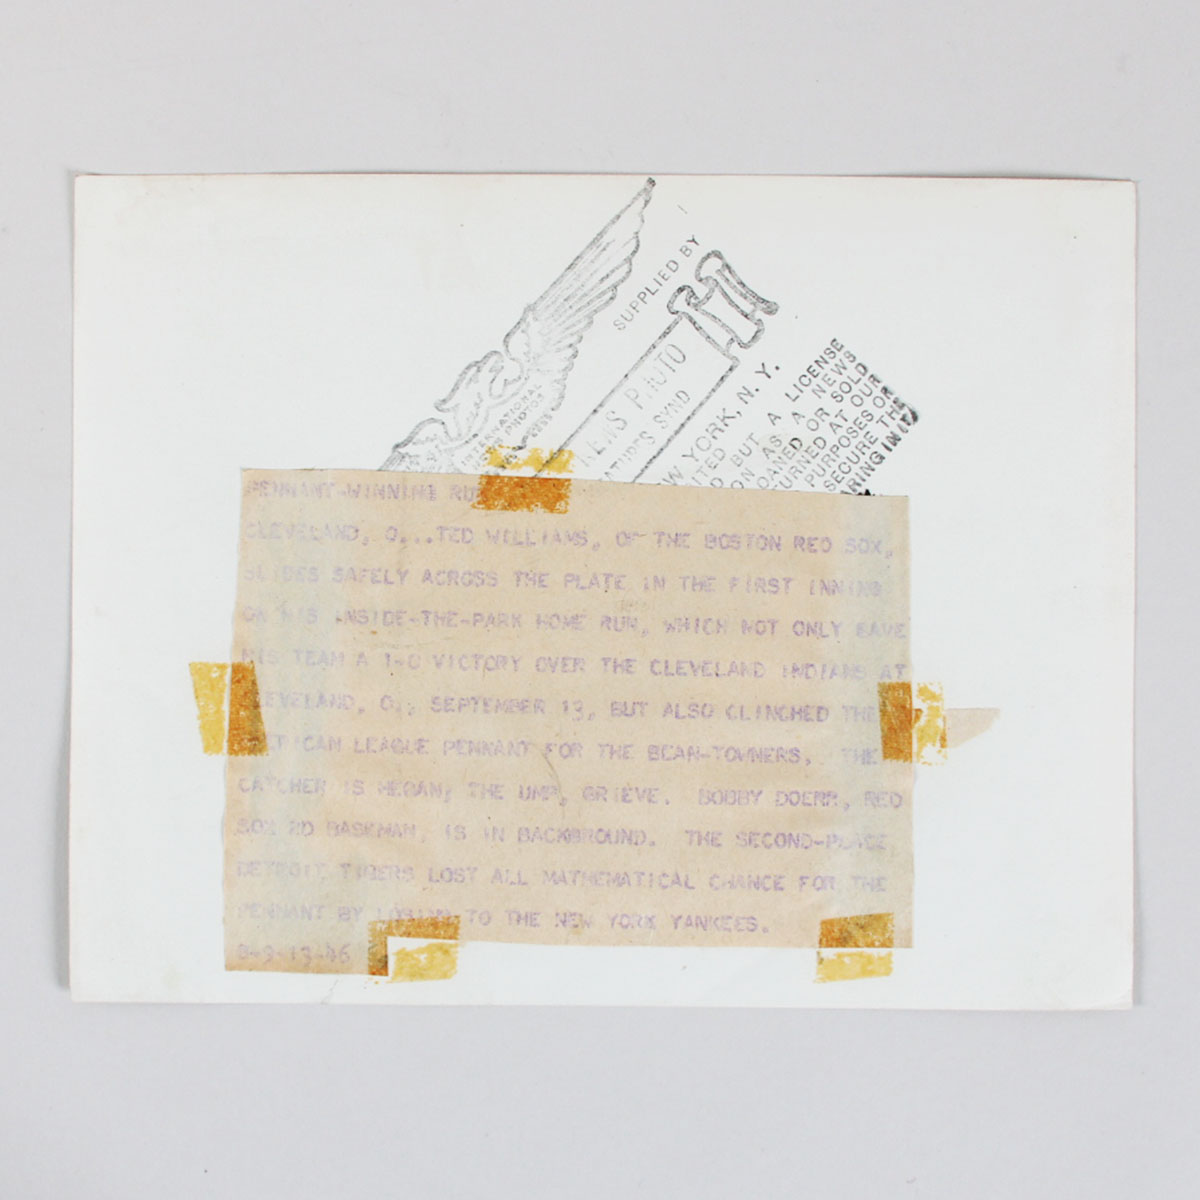 SUPPLIED BY
INTERNATIONAL
NEWS PHOTO
SYND
YORK, N. Y.
BUT A LICENSE
AS A NEWS
LOANED OR SOLD
AT OUR
PURPOSES OR
SECURE THE
PENNANT-WINNING RUN
CLEVELAND, O...TED WILLIAMS, OF THE BOSTON RED SOX,
SLIDES SAFELY ACROSS THE PLATE IN THE FIRST INNING
ON HIS INSIDE-THE-PARK HOME RUN, WHICH NOT ONLY GAVE
HIS TEAM A 1-0 VICTORY OVER THE CLEVELAND INDIANS AT
CLEVELAND, O., SEPTEMBER 13, BUT ALSO CLINCHED THE
LEAGUE PENNANT FOR THE BEAN-TOWNERS. THE
CATCHER IS HEGAN; THE UMP, GRIEVE. BOBBY DOERR, RED
SOX 2D BASEMAN, IS IN BACKGROUND. THE SECOND-PLACE
DETROIT TIGERS LOST ALL MATHEMATICAL CHANCE FOR THE
PENNANT BY LOSING TO THE NEW YORK YANKEES.
9-13-46